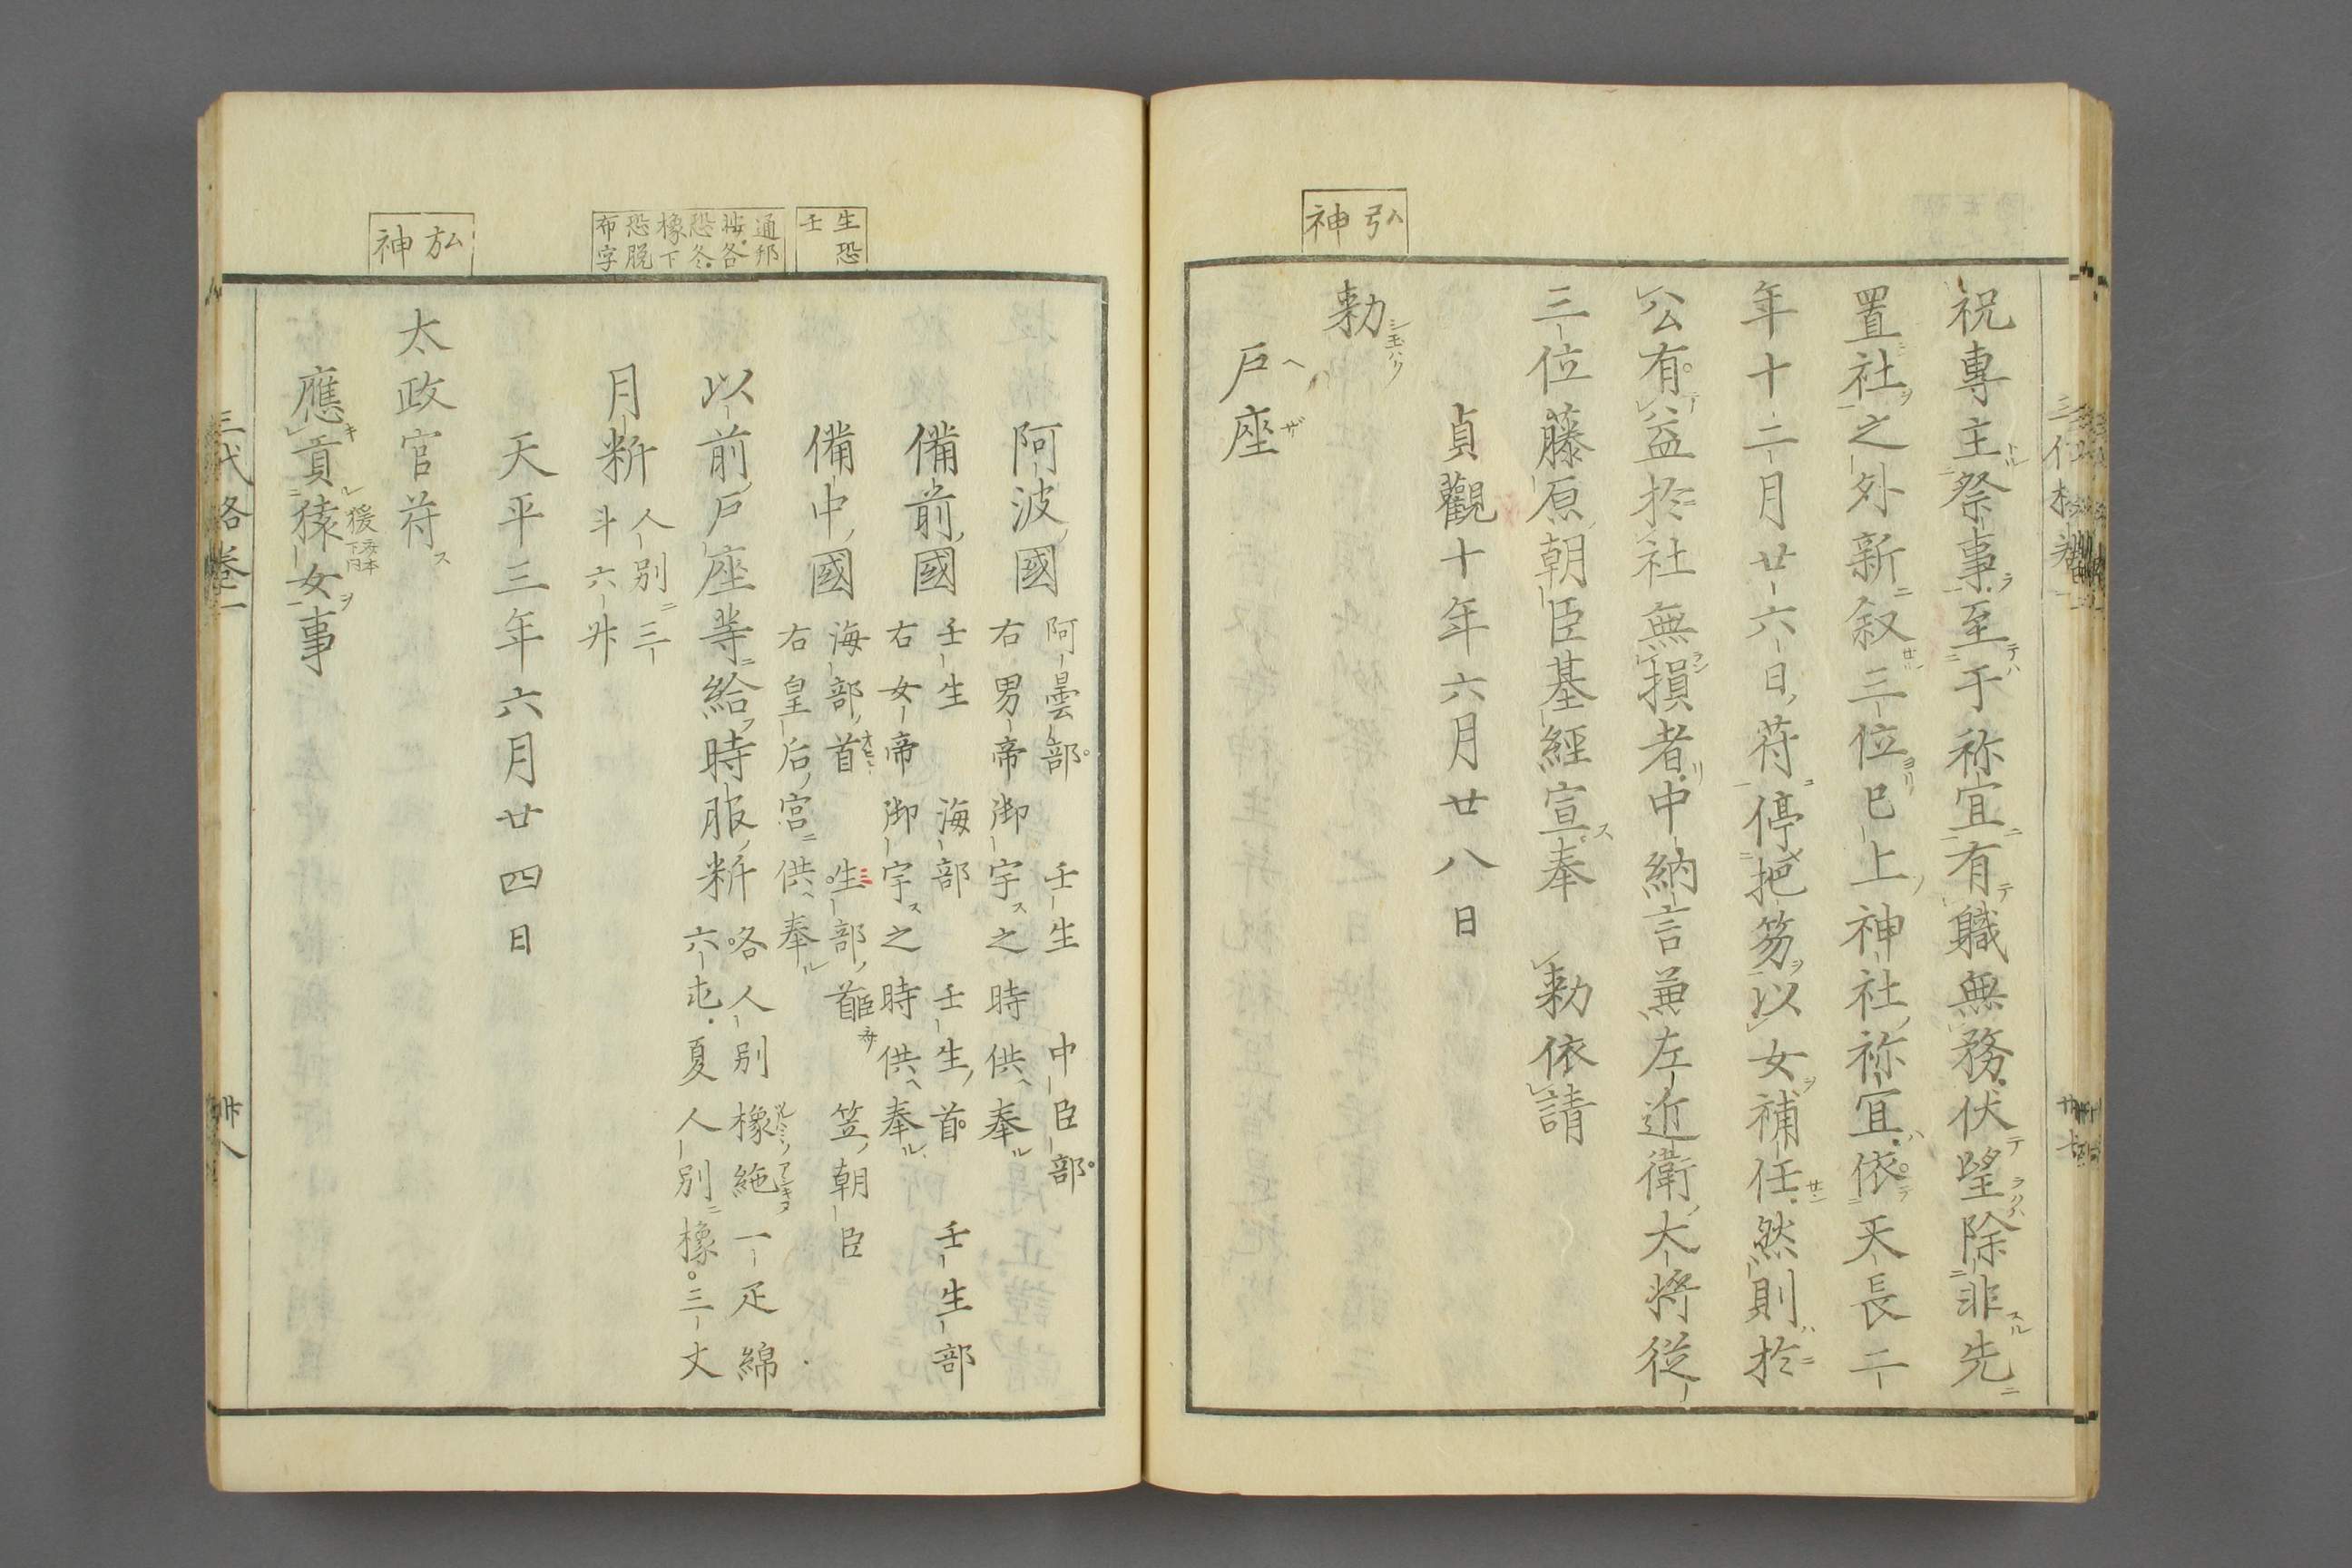 弘神
祝專主祭事至于祢宜有職無務伏望除非先
置社之外新叙三位已上神社祢宜依天長二
年十二月廿六日符停把笏以女補任然則於
公有益於社無損者中納言兼左近衛大将従
三位藤原朝臣基經宣奉　勅依請
貞觀十年六月廿八日
勅
戸座
生恐壬
通邦按各恐冬橡下恐脱布字
弘神
阿波國
阿曇部　壬生　中臣部
右男帝御宇之時供奉
備前國
壬生　海部　壬生首　壬生部
右女帝御宇之時供奉
備中國
海部首　生部首　笠朝臣
右皇后宮供奉
以前戸座等給時服粁
咯人別橡絁一疋綿
六屯夏人別橡三丈
月粁
人別三
斗六升
天平三年六月廿四日
太政官符
應貢猿女事
三代格卷一